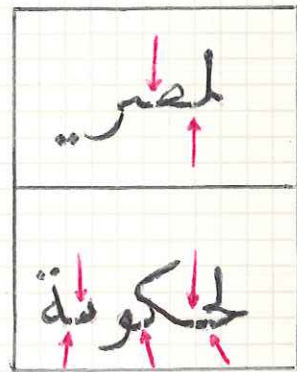 لمصري
لحكومة